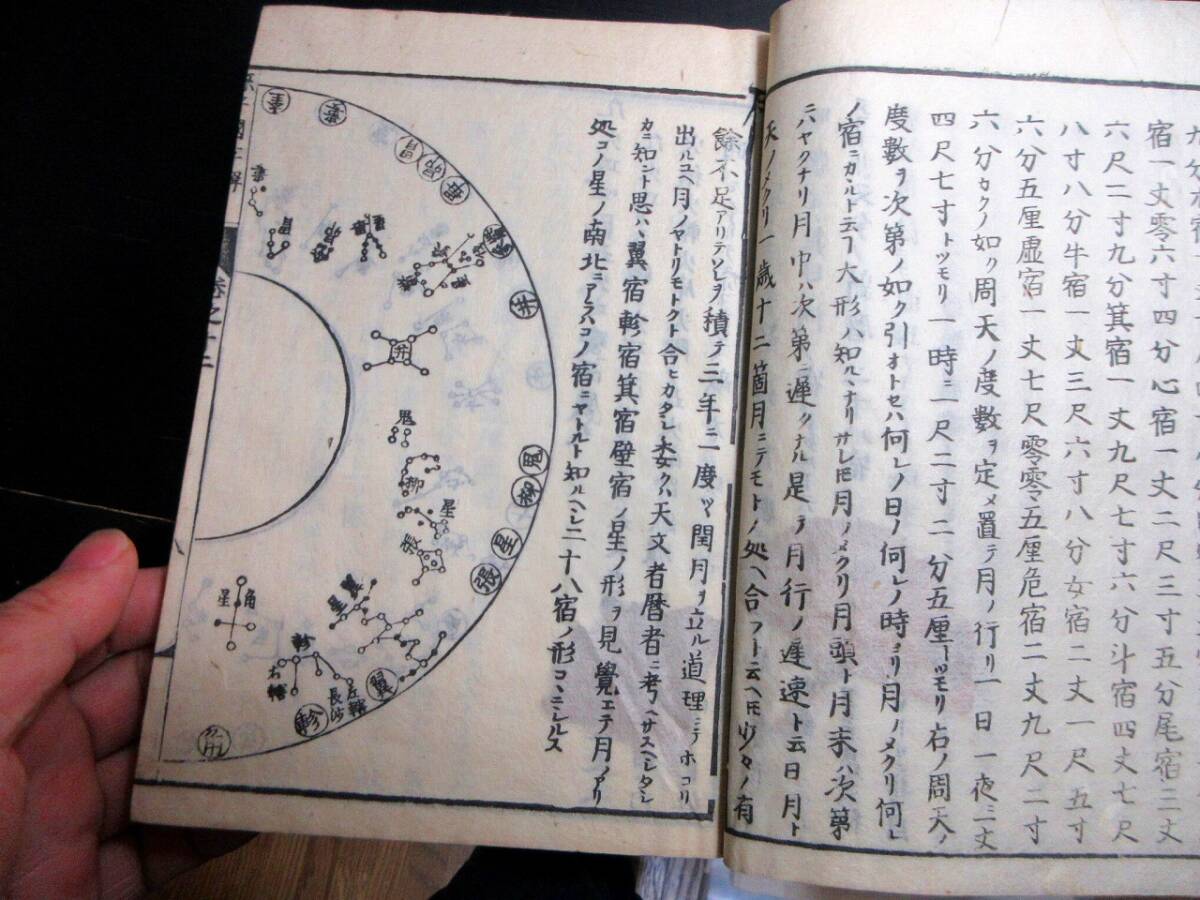 宿一丈零六寸四分心宿一丈二尺三寸五分尾宿三丈
六尺二寸九分箕宿一丈九尺七寸六分斗宿四丈七尺
八寸八分牛宿一丈三尺六寸八分女宿二丈一尺五寸
六分五厘虚宿一丈七尺零零五厘危宿二丈九尺二寸
六分カクノ如ク周天ノ度數ヲ定メ置テ月ノ行リ一日一夜ニ丈
四尺七寸トツモリ一時ニ一尺二寸二分五厘ーツモリ右ノ周天ノ
度數ヲ次第ノ如ク引オトセハ何レノ日ノ何レノ時ヨリ月ノメクリ何レ
ノ宿ニカルト云フ大形ハ知ルヽナリサレ𪜈月ノメクリ月頭ト月末ハ次第
ニハヤクナリ月中ハ次第ニ遅クナル是ヲ月行ノ遅速ト云日月ト
天ノメクリ一歳十二箇月ニテモトノ処ヘ合フト云ヘ𪜈少々ノ有
餘不足アリテソレヲ積テ三年ニ一度ツヽ閏月ヲ立ル道理ニテホコリ
出ルユヘ月ノヤトリモトクト合ヒカタシ委クハ天文者暦者ニ考ヘサスヘシタシ
カニ知ント思ハヽ翼宿軫宿箕宿壁宿ノ星ノ形ヲ見覺エテ月ノアリ
処コノ星ノ南北ニアラハコノ宿ニヤトルト知ルヘシ二十八宿ノ形コヽニシルス
奎
婁
胃
昴
畢
觜
井
鬼
柳
星
張
翼
軫
角
婁
胃
昴
畢
井
鬼
柳
星
張
翼星
軫
左轄
長沙
右轄
角星
卷之十二